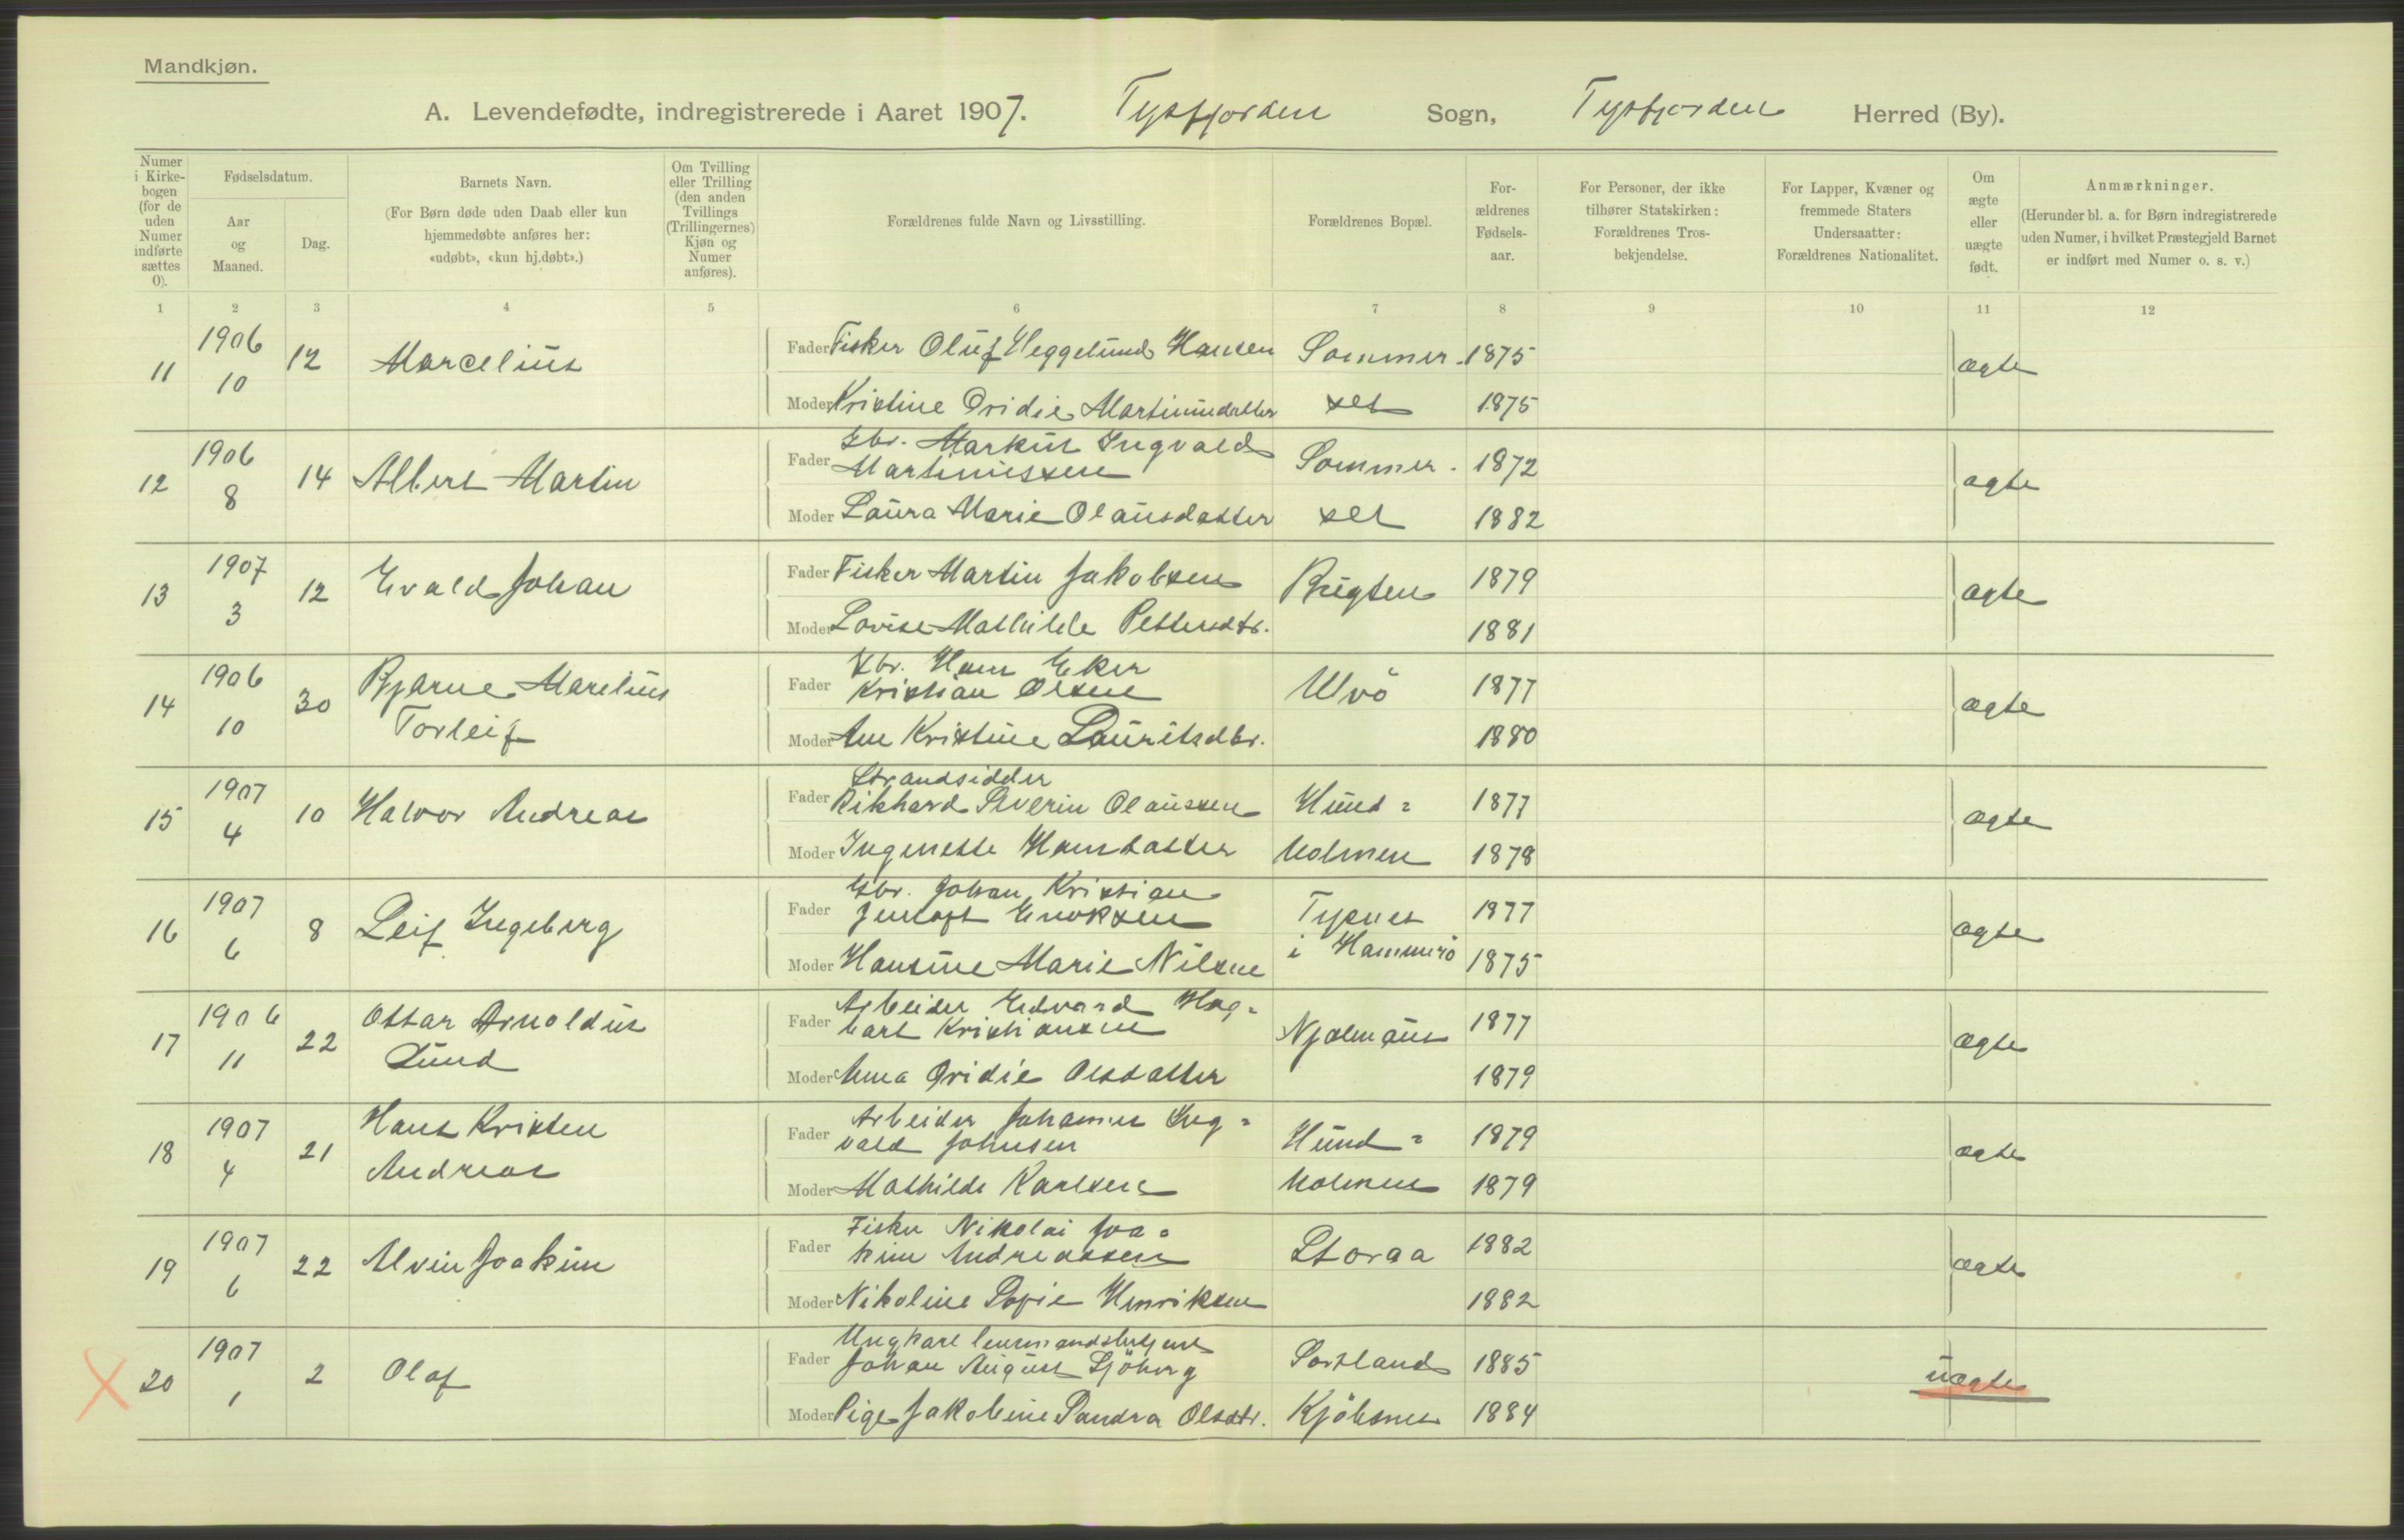 Mandkjøn.
A. Levendefødte, indregistrerede i Aaret 1907. Tysfjorden Sogn, Tysfjorden Herred (By).
Numer i Kirke-bogen (for de uden Numer indførte sættes 0).
Fødselsdatum.
Aar og Maaned.
Dag.
Barnets Navn.
(For Børn døde uden Daab eller kun hjemmedøbte anføres her: «udøbt», «kun hj.døbt».)
Om Tvilling eller Trilling (den anden Tvillings (Trillingernes) Kjøn og Numer anføres).
Forældrenes fulde Navn og Livsstilling.
Forældrenes Bopæl.
For-ældrenes Fødsels-aar.
For Personer, der ikke tilhører Statskirken: Forældrenes Tros-bekjendelse.
For Lapper, Kvæner og fremmede Staters Undersaatter: Forældrenes Nationalitet.
Om ægte eller uægte født.
Anmærkninger.
(Herunder bl. a. for Børn indregistrerede uden Numer, i hvilket Præstegjeld Barnet er indført med Numer o. s. v.)
1 2 3 4 5 6 7 8 9 10 11 12
11 1906 10 12 Marcelius Fader Fisker Oluf Heggelund Hansen Sommer- 1875 ægte
Moder Kristine Ovidie Martinusdatter set 1875
12 1906 8 14 Albert Martin Fader Gbr. Markus Ingvald
Martinussen Sommer- 1872 ægte
Moder Laura Marie Olausdatter set 1882
13 1907 3 12 Evald Johan Fader Fisker Martin Jakobsen Bugten 1879 ægte
Moder Lovise Mathilde Pettersdtr. 1881
14 1906 10 30 Bjarne Marelius
Torleif Fader Gbr. Hans Eker
Kristian Olsen Ulvö 1877 ægte
Moder Ane Kristine Lauritsdtr. 1880
15 1907 4 10 Halvor Andreas Fader Strandsidder
Rikhard Severin Olaussen Hund= 1877 ægte
Moder Ingenette Hansdatter holmen 1878
16 1907 6 8 Leif Ingeberg Fader Gbr. Johan Kristian
Jentoft Enoksen Tysnes 1877 ægte
Moder Hansine Marie Nilsen i Hammerö 1875
17 1906 11 22 Ottar Arnoldus
Lund Fader Arbeider Edvard Hag=
bart Kristiansen Njalmaus 1877 ægte
Moder Anna Ovidie Olsdatter 1879
18 1907 4 21 Hans Kristen
Andreas Fader Arbeider Johannes Ing=
vald Johnsen Hund= 1879 ægte
Moder Mathilde Karlsen holmen 1879
19 1907 6 22 Alvin Joakim Fader Fisker Nikolai Joa=
kim Andreassen Storaa 1882 ægte
Moder Nikoline Sofie Henriksen 1882
20 1907 1 2 Olaf Fader Ungkarl lensmandsbetjent
Johan August Sjöberg Sortland 1885 uægte
Moder Pige Jakobine Sandra Olsdtr. Kjöbsnes 1884